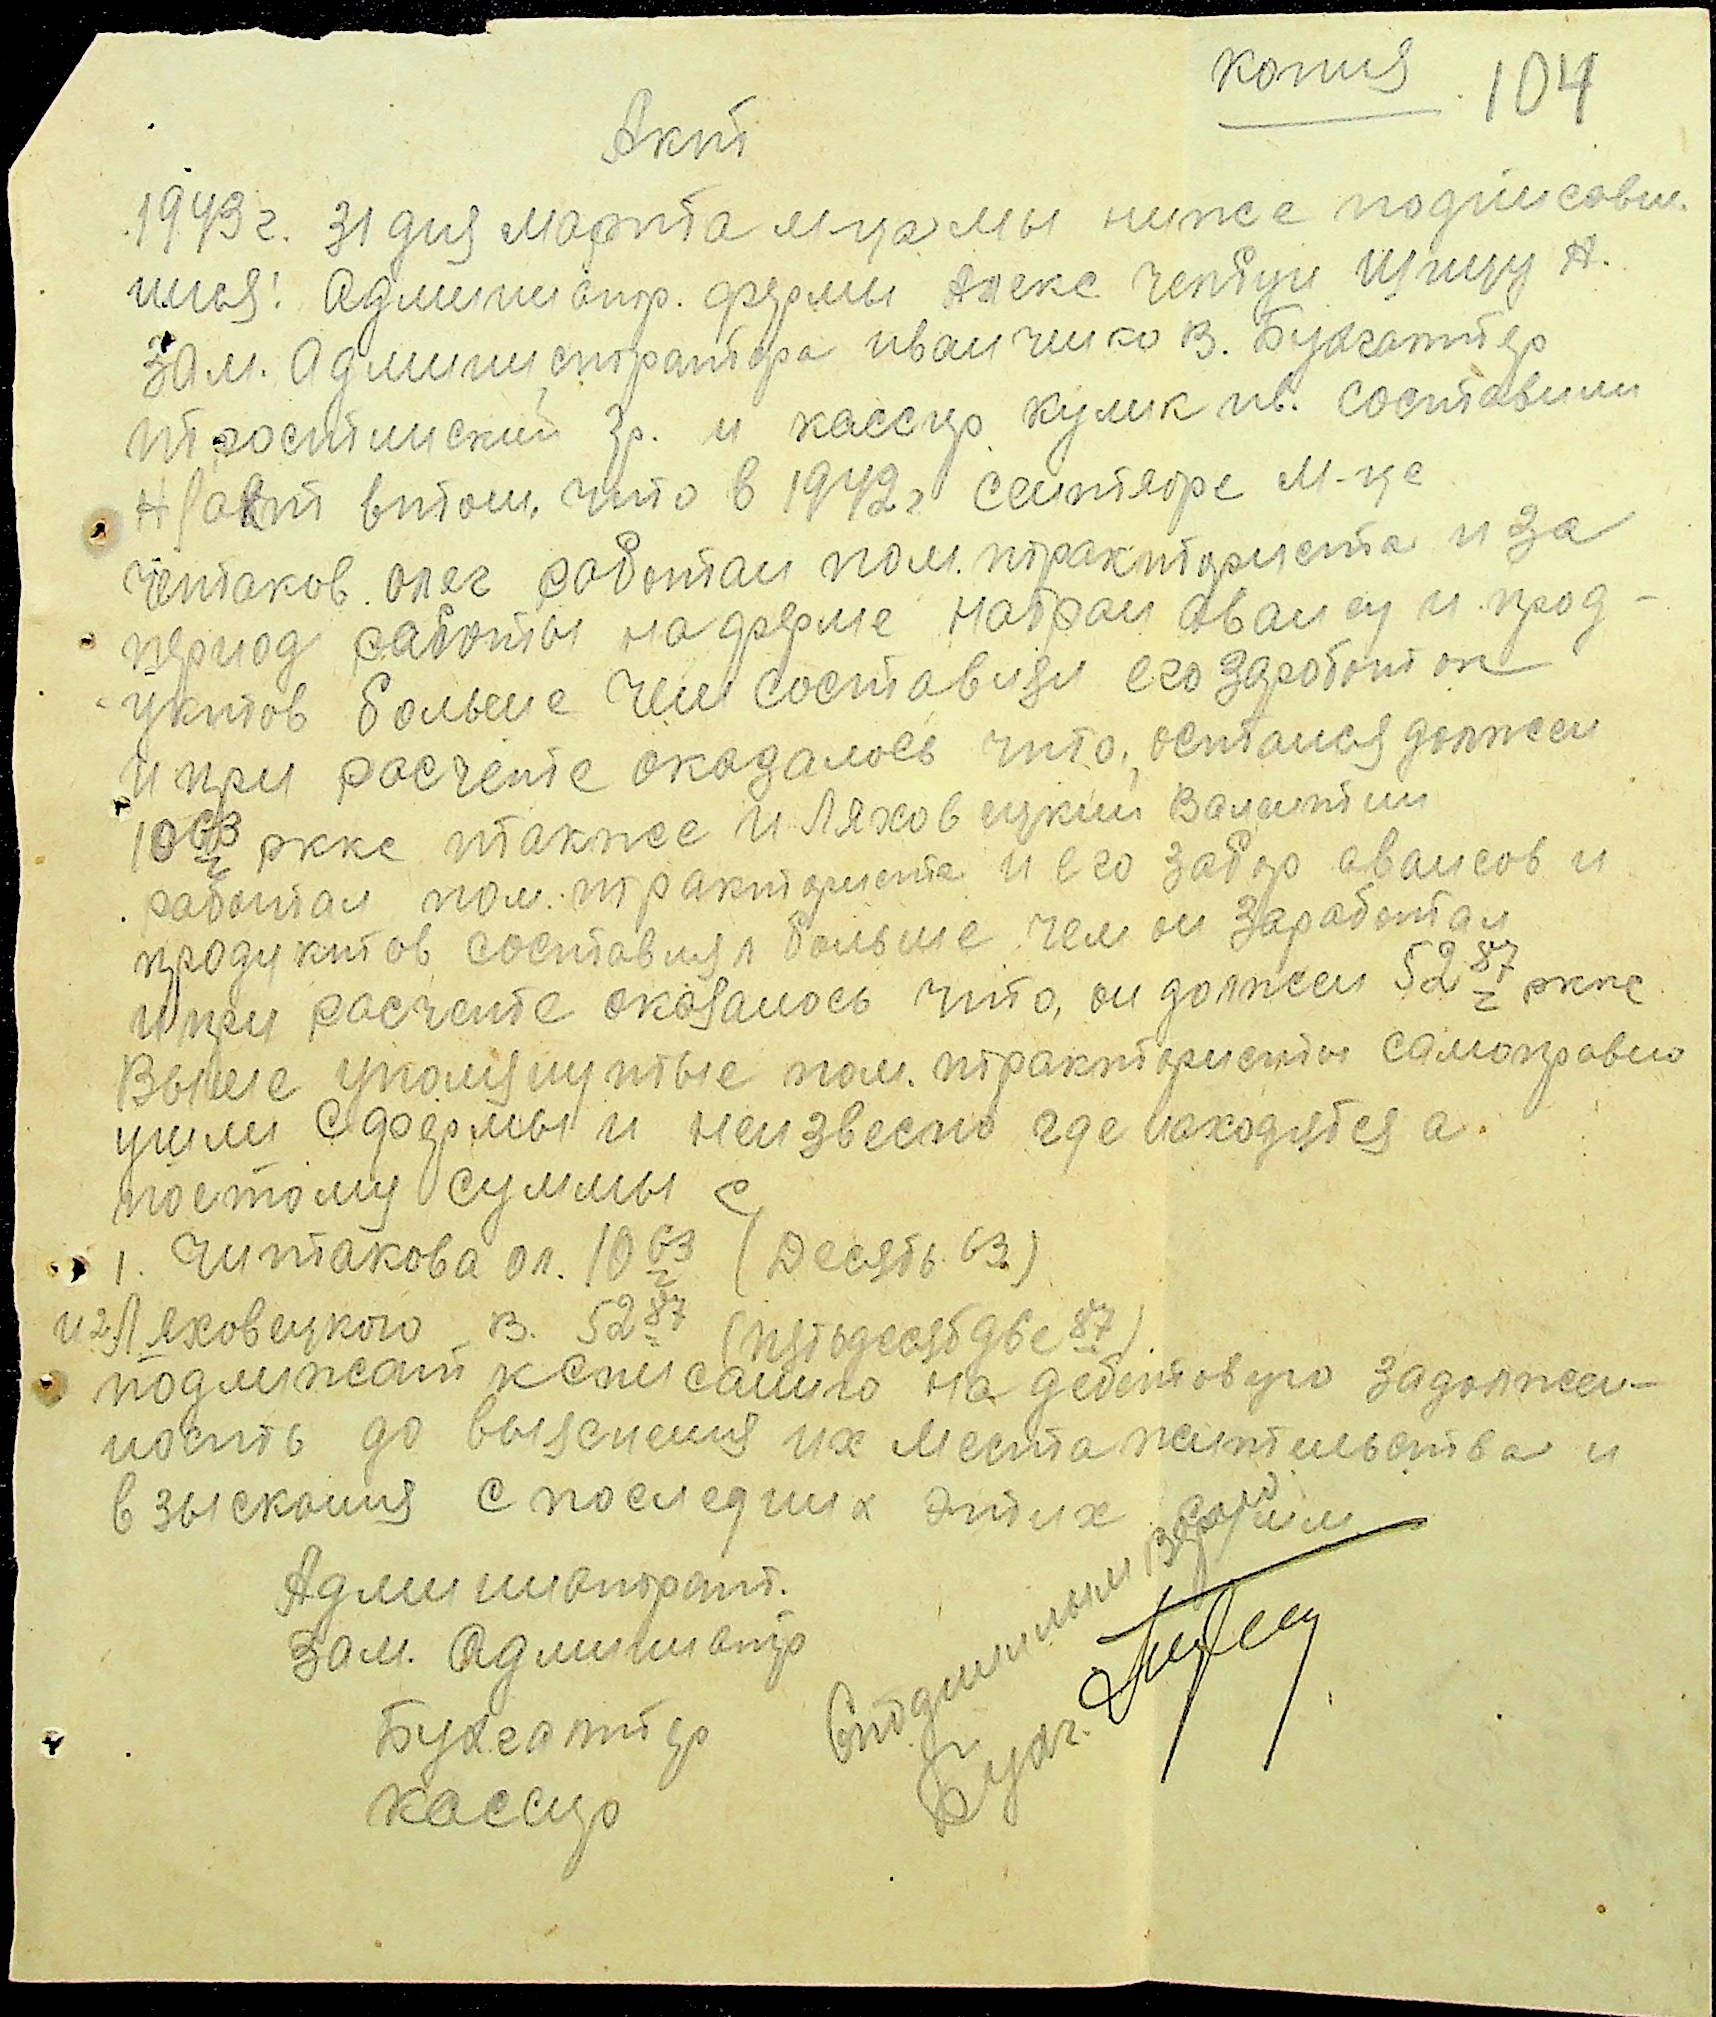 копия 104
Акт
1943 г. 31 дня марта м-ца мы ниже подписавш.
шися: Администр. фермы Алекс
Зам. Администратора иванченко В. Бухгалтер
тростинский Гр. и кассир Кулик ив. составили
н/акт втом, что в 1942 г сентябре м-це
Четаков олег работал пом. тракториста и за
период работы на ферме набрал авансу и прод-
уктов больше чем составлял его заработок
и при расчете оказалось что, остался должен
10 63 ркке также и Ляховецкий Валентин
работал пом. тракториста и его забор авансов и
продуктов составлял больше чем он заработал
и при расчете оказалось что, он должен 52 87 ркке
Выше упомянутые пом. трактористы самоправно
ушли с фермы и неизвесно где находятся а
поетому суммы с
1. Читакова ол. 10 63 (Десять 63)
и 2 Ляховецкого В. 52 87 (пятьдесят две 87)
подлижат к списанию на дебетовую задолжен-
ность до выяснения их места жительства и
взыскания с последних этих сумм
Администрат.
Зам. Администр
Бухгалтер
кассир
С подлинным верно
Бухг.